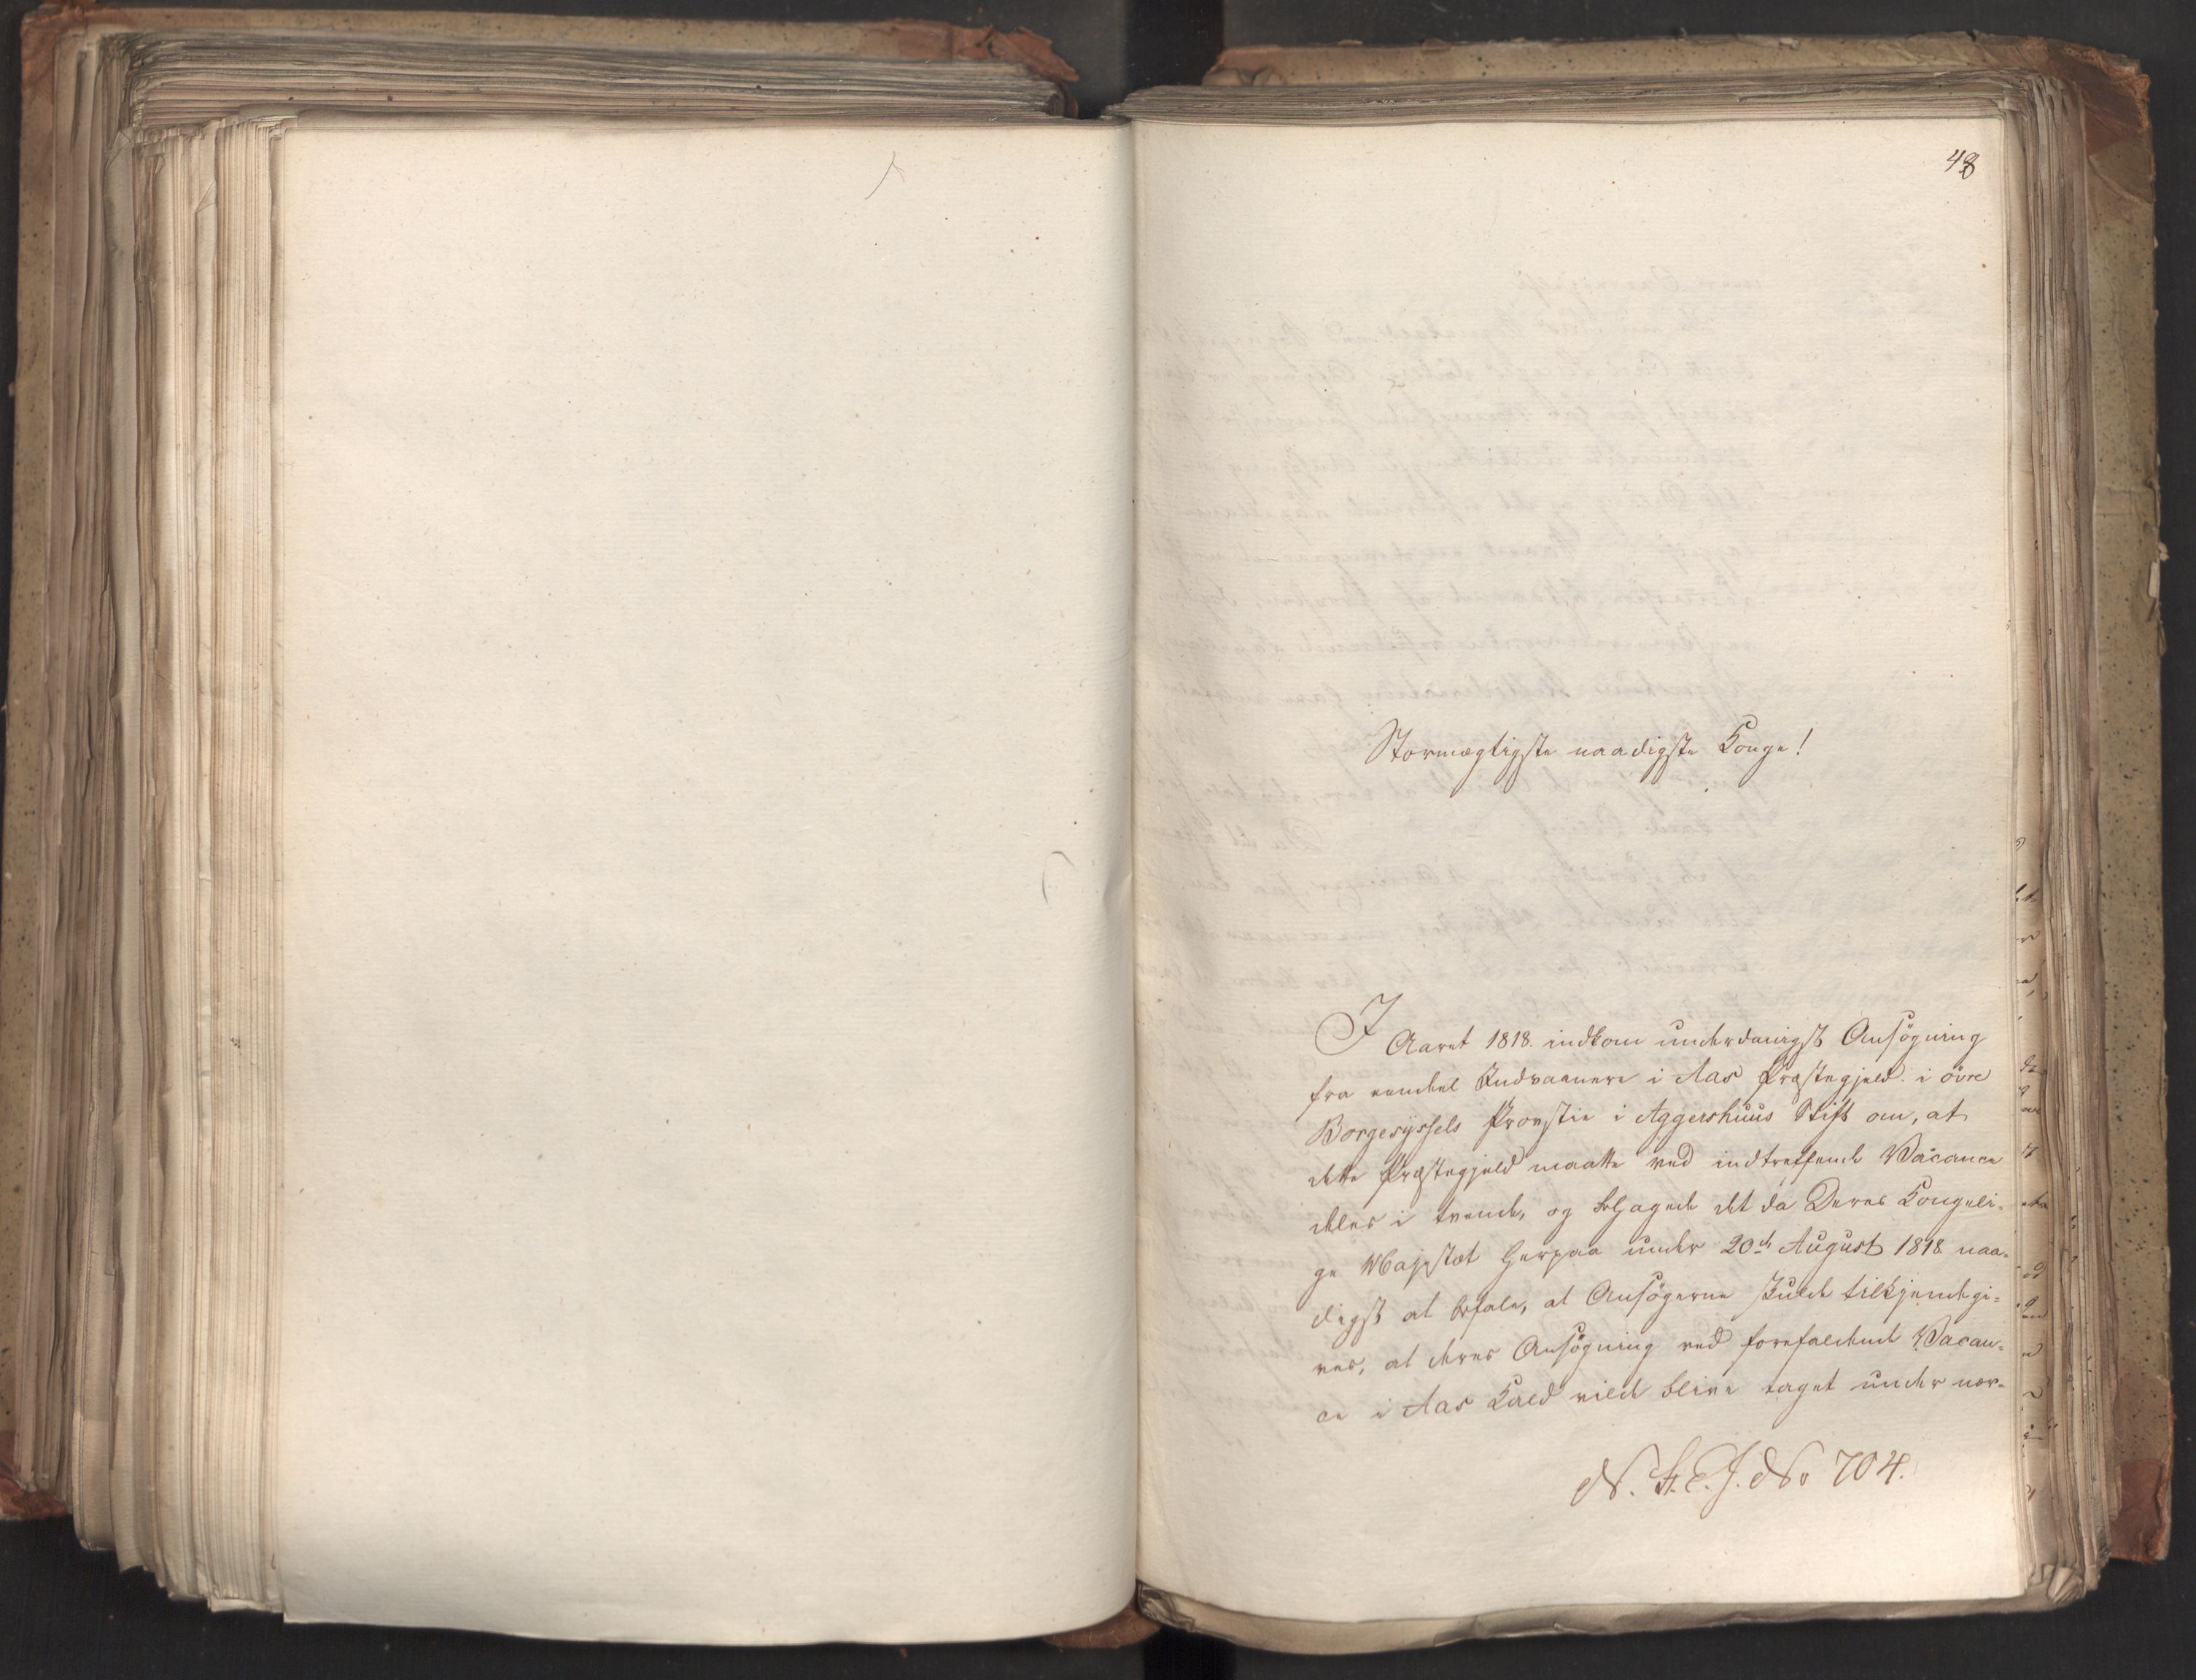 48
Stormægtigste naadigste Konge!
I Aaret 1818 indkom underdanigst Ansögning
fra eendeel Indvaanere i Aas Præstegjeld i övre
Borgesyssels Provstie i Aggershuus Stift om, at
dette Præstegjeld maatte ved indtreffende Vacance
deles i tvende, og behagede det da Deres Kongeli-
ge Majestæt herpaa under 20de August 1818 naa-
digst at befale, at Ansögerne skulde tilkjendegi-
ves, at deres Ansögning ved forefaldende Vacan-
ce i Aas Kald vilde blive taget under nær-
No 704.